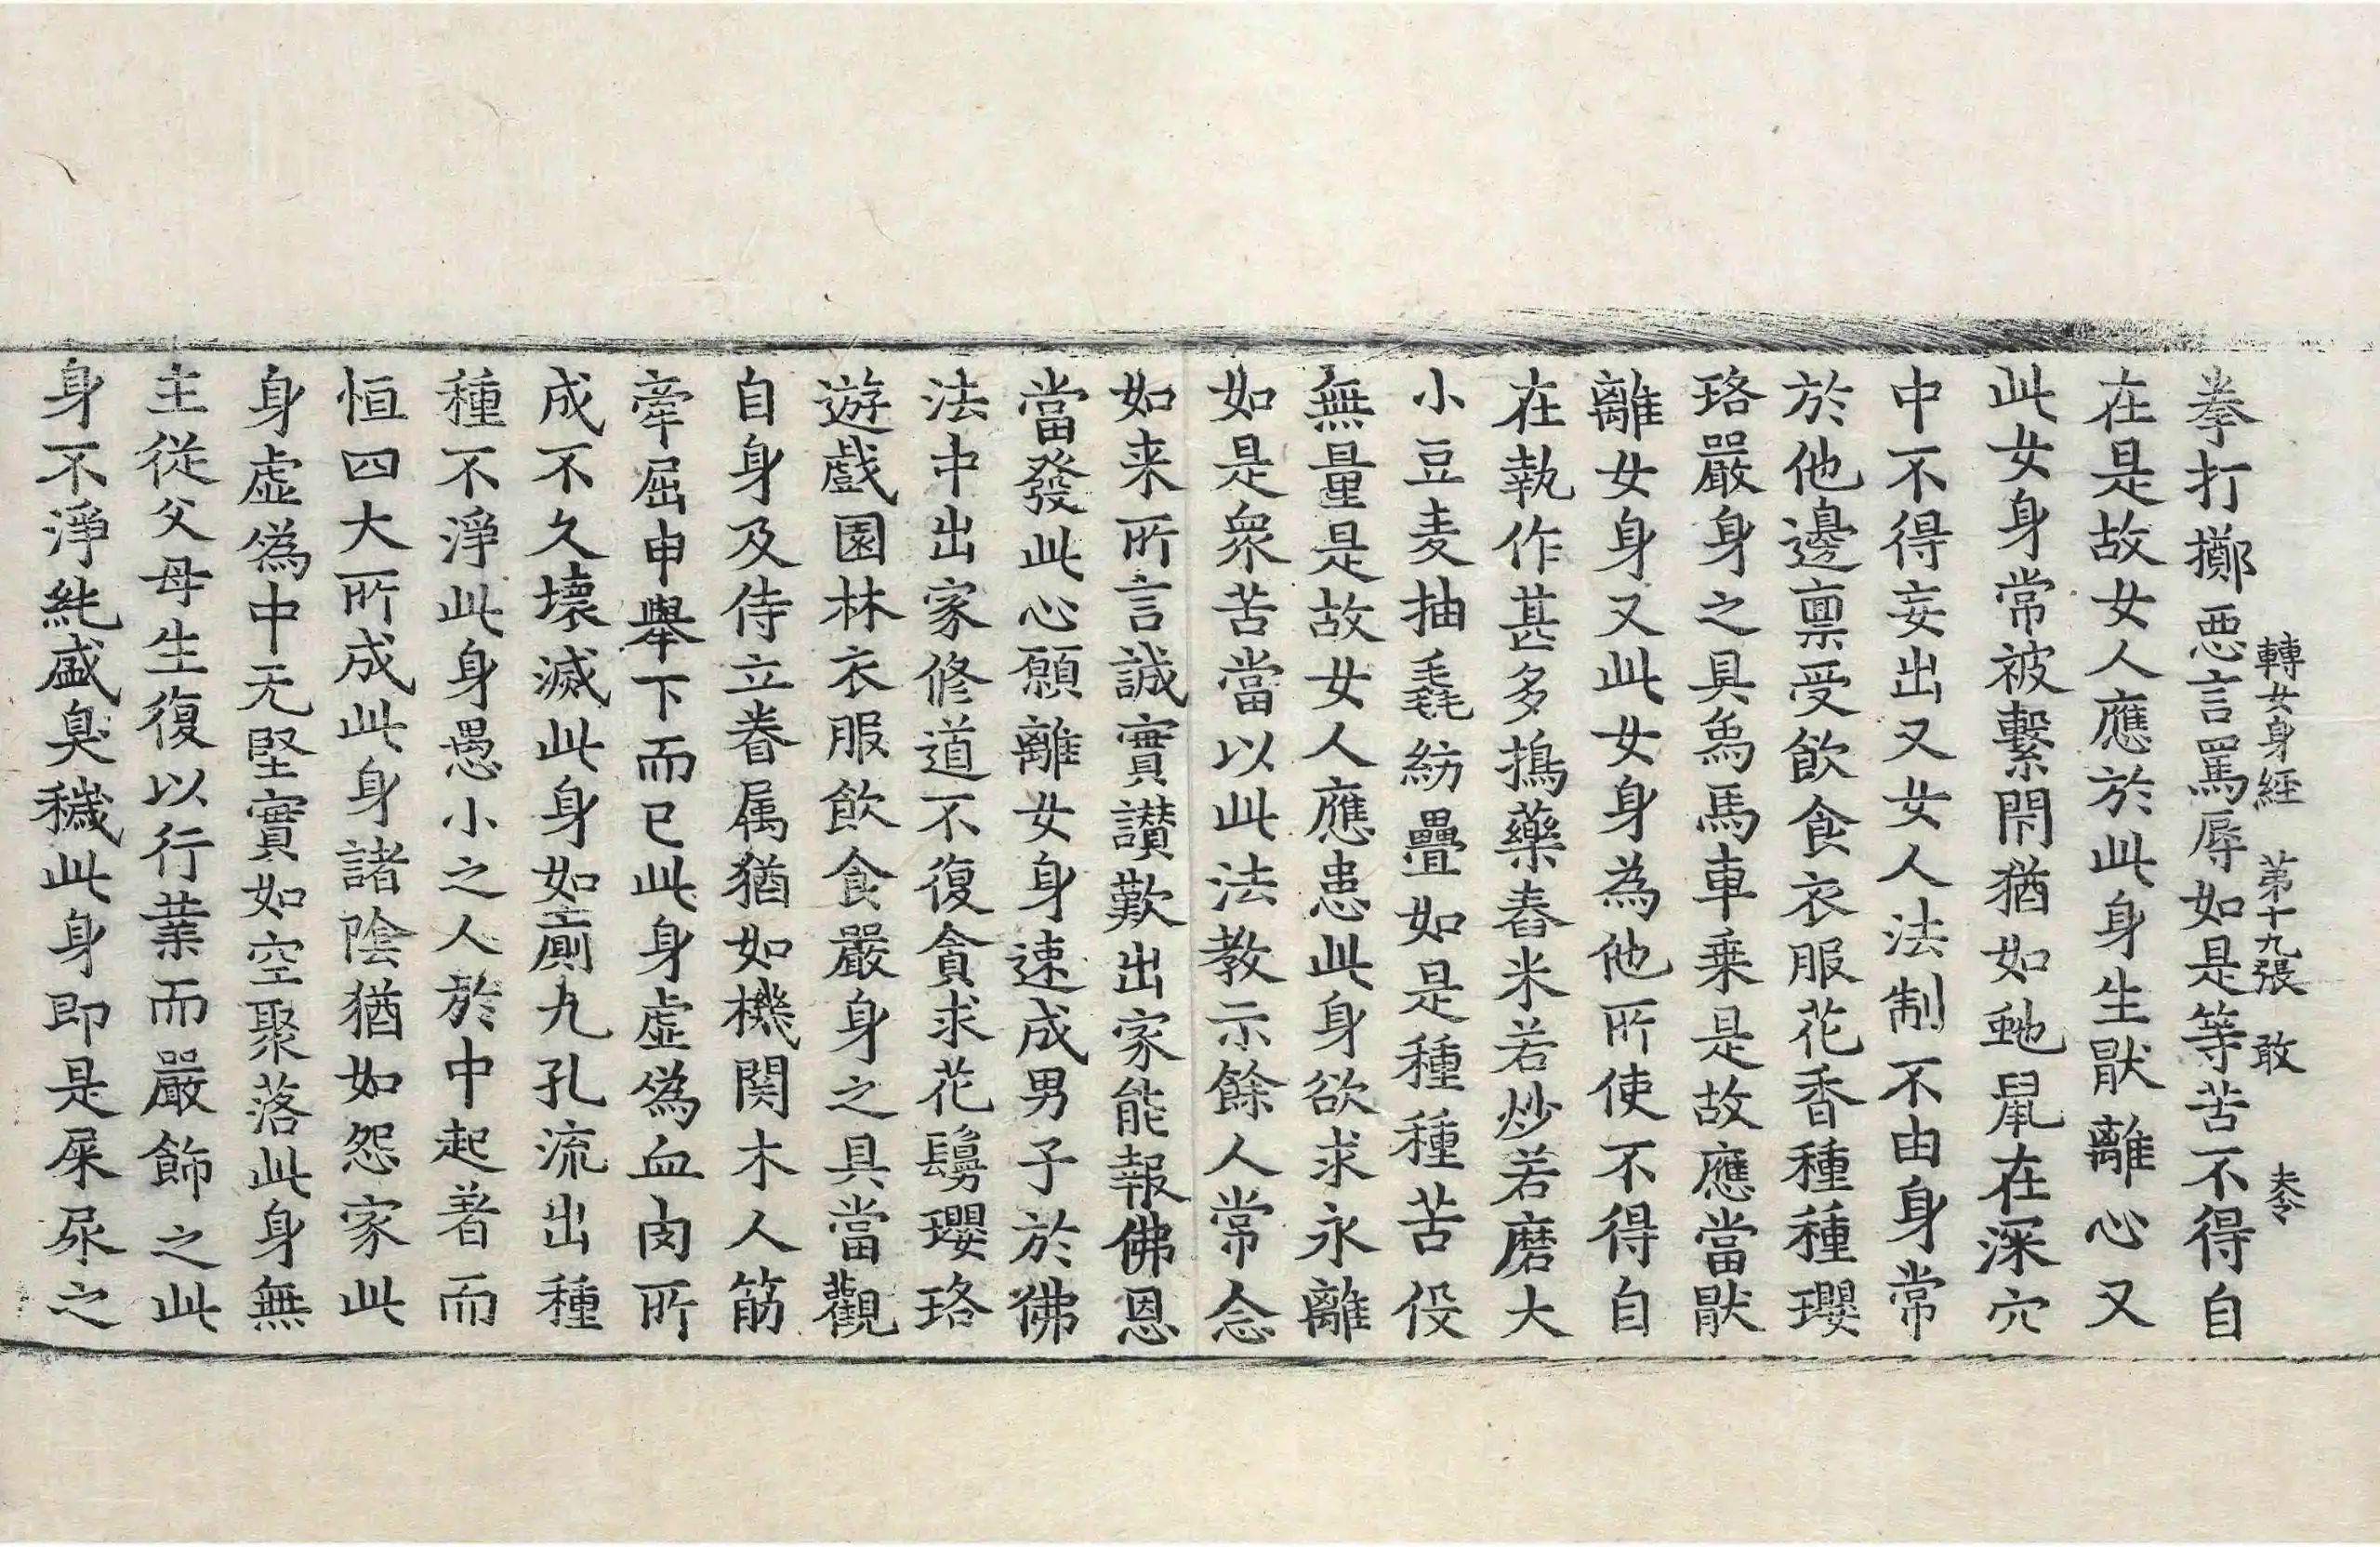 轉女身經 苐十九張 敢 夫令
拳打擲惡言罵辱如是等苦不得自
在是故女人應於此身生猒離心又
此女身常被繫閇猶如虵鼠在深穴
中不得妄出又女人法制不由身常
於他邊禀受飲食衣服花香種種瓔
珞嚴身之具象馬車乗是故應當猒
離女身又此女身為他所使不得自
在執作甚多擣藥舂米若炒若磨大
小豆麦抽毳紡疊如是種種苦役
無量是故女人應患此身欲求永離
如是衆苦當以此法教示餘人常念
如来所言誠實讃歎出家能報佛恩
當發此心願離女身速成男子於佛
法中出家修道不復貪求花鬘瓔珞
遊戲園林衣服飲食嚴身之具當觀
自身及侍立眷属猶如機関木人筋
牽屈申舉下而已此身虛僞血肉所
成不久壞滅此身如圊廁九孔流出種
種不淨此身愚小之人於中起著而
恒四大所成此身諸陰猶如怨家此
身虛僞中无堅實如空聚落此身無
主從父母生復以行業而嚴飾之此
身不淨純盛臭穢此身即是屎尿之